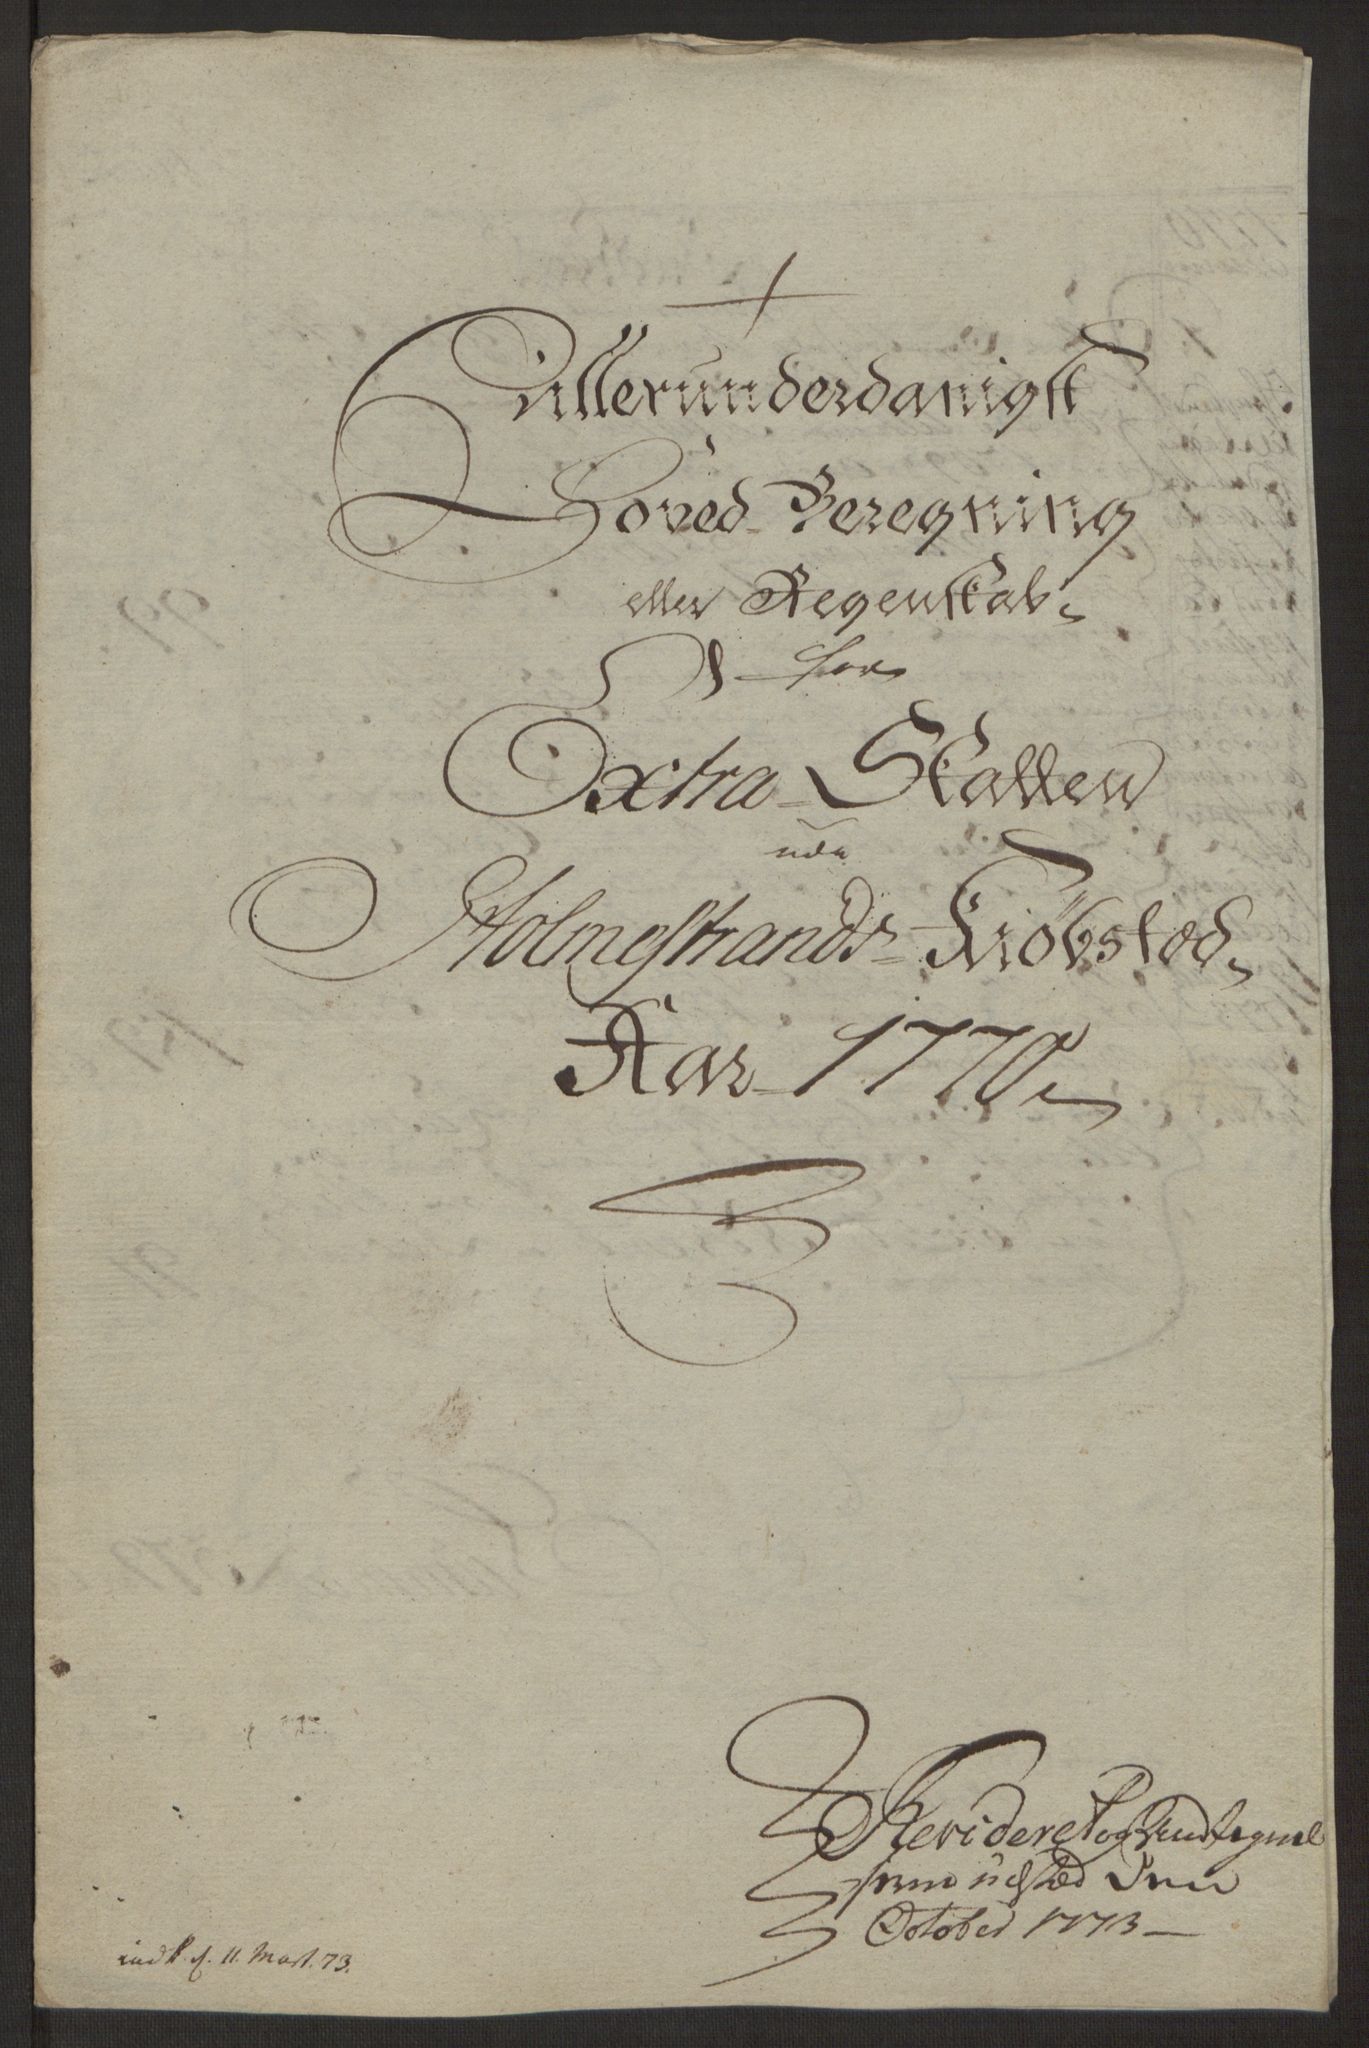 Allerunderdanigst
Hoved Beregning
eller Regenskab
for
Extra Skatten
udi
Holmestrands Kiöbsted
Aar 1770
Revideret og
udsted den
October 1773
indk. d. 11. Mart. 73.